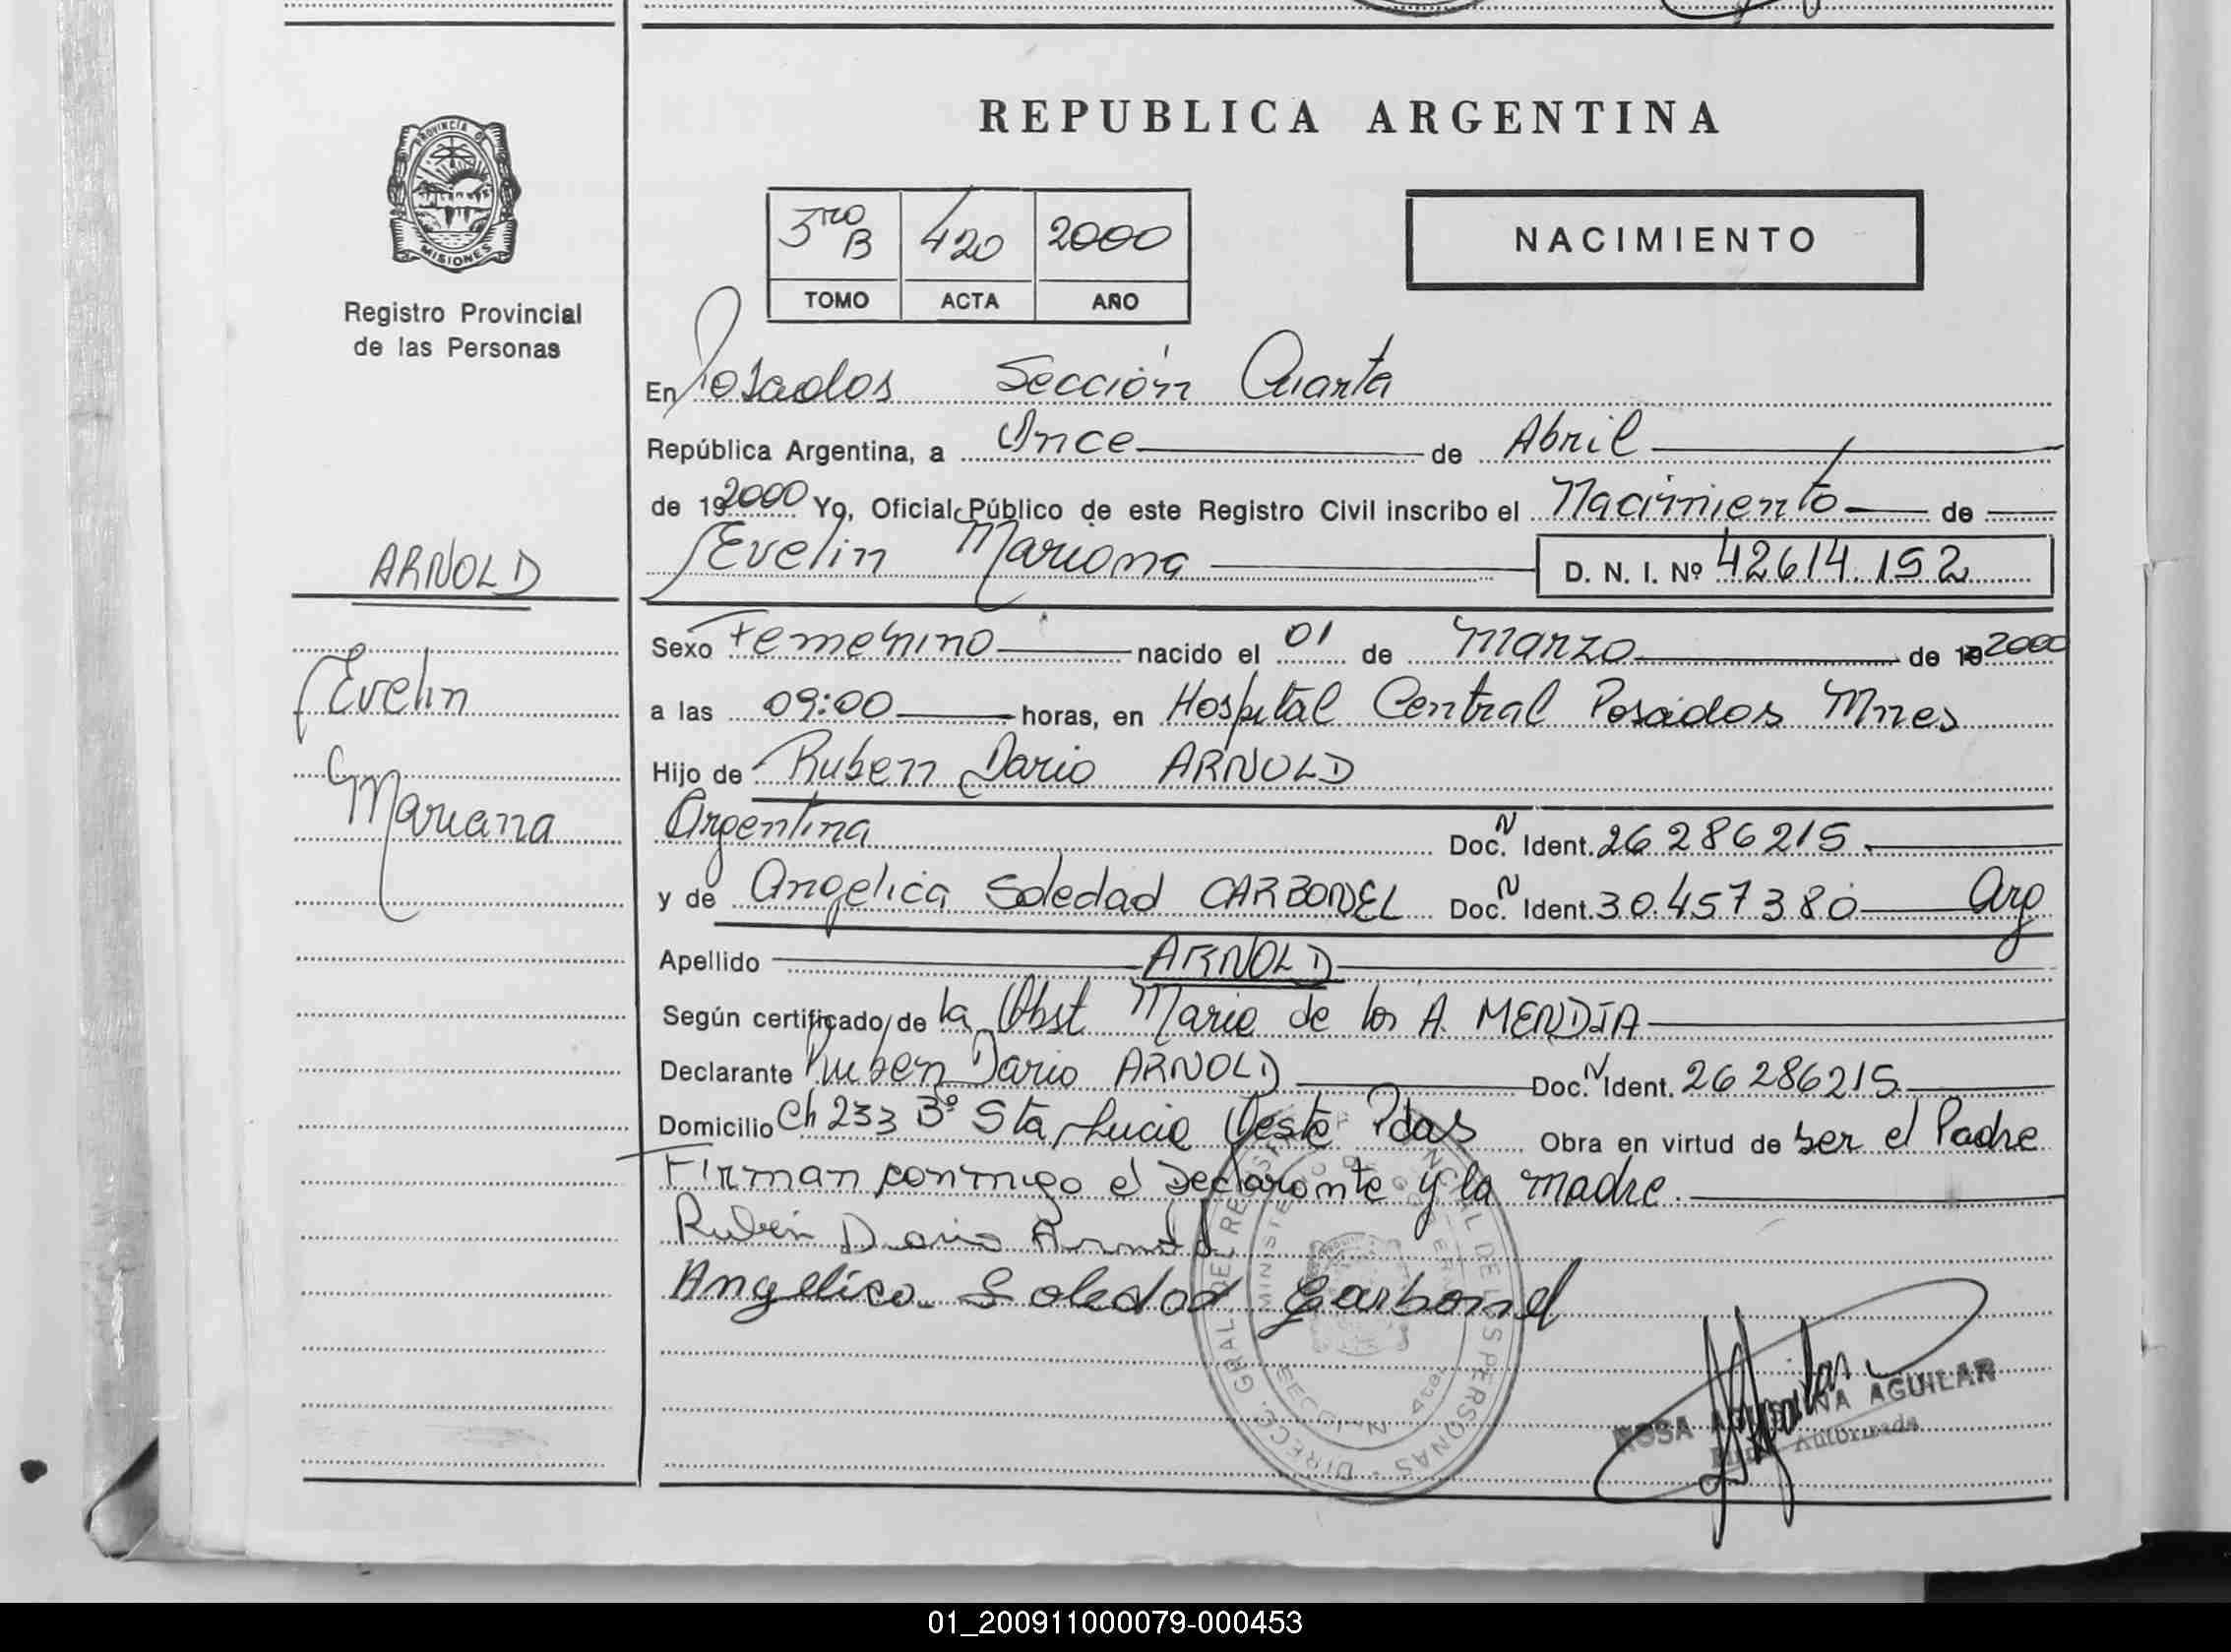 REPUBLICA ARGENTINA
PROVINCIA DE
MISIONES
Registro Provincial
de las Personas
3ro B 420 2000
TOMO ACTA AÑO
NACIMIENTO
En Posadas Sección Cuarta
República Argentina, a Once de Abril
de 192000 Yo, Oficial Público de este Registro Civil inscribo el Nacimiento de
Evelin Mariana D. N. I. Nº 42614.152
ARNOLD
Evelin
Mariana
Sexo Femenino nacido el 01 de Marzo de 192000
a las 09:00 horas, en Hospital Central Posadas Mnes
Hijo de Ruben Dario ARNOLD
Argentina Doc. N Ident. 26286215
y de Angelica Soledad CARBONEL Doc. N Ident. 30.457380 Arg
Apellido ARNOLD
Según certificado de la Obst Maria de los A. MENDIA
Declarante Ruben Dario ARNOLD Doc. N Ident. 26286215
Domicilio Ch 233 Bº Sta Lucia Oeste Pdas Obra en virtud de ser el Padre
Firman conmigo el Declarante y la madre.
Rubén Dario Arnold
Angelica Soledad Carbonel
ROSA AGUSTINA AGUILAR
Autorizada
01_200911000079-000453